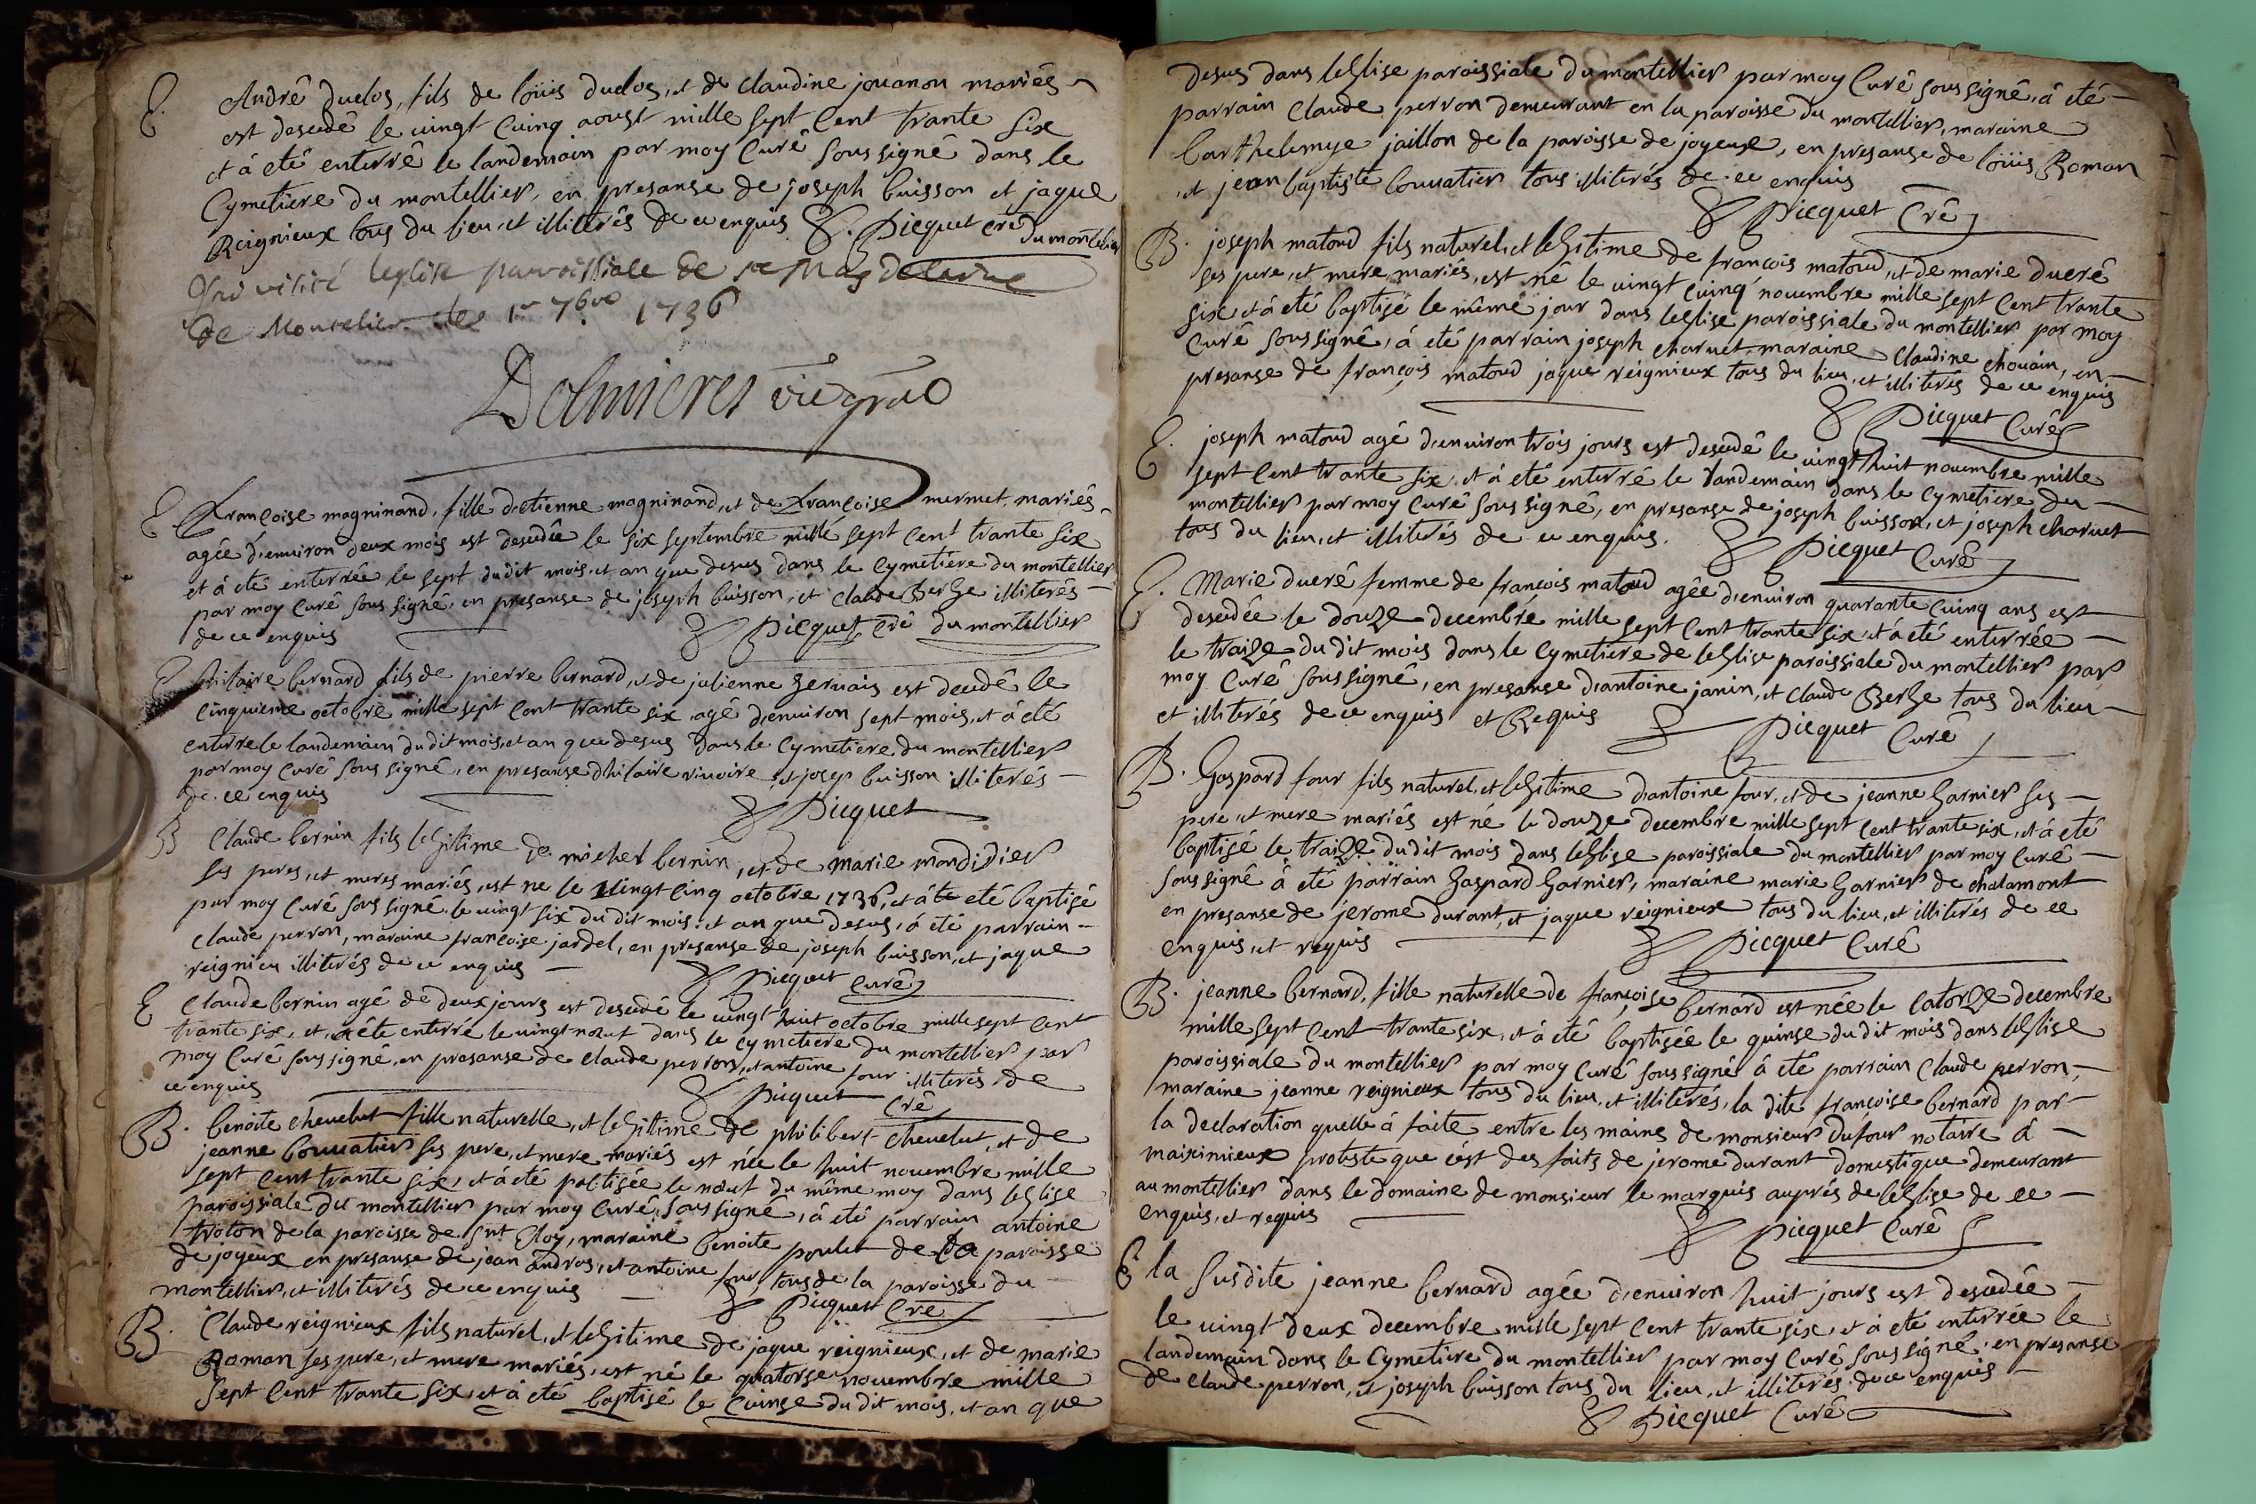 E. André duclos, fils de loüis duclos, et de claudine jouanon mariés
est desedé le vingt cuinq aoust mille sept cent trante six
et á eté enterré le landemain par moy curé sous signé dans le
cymetiere du montellier, en presanse de joseph buisson et jaque
Reignieux tous du lieu, et illiterés de ce enquis Picquet cré du montellier
J'ai visité leglise parroissiale de ste Magdelaine
de Montelier le 1er 7bre 1736
vic gnal
E françoise magninand, fille d'etienne magninand, et de françoise mermet mariés
agée d'environ deux mois est desedée le six septembre mille sept cent trante six
et á eté enterrée le sept dudit mois, et an que desus dans le cymetiere du montellier
par moy curé sous signé, en presanse de joseph buisson, et claude Berge illiterés
de ce enquis Picquet cré du montellier
E hilaire bernard fils de pierre bernard, et de julienne gervais est decedé le
cinquieme octobre mille sept cent trante six agé d'environ sept mois, et á eté
enterré le landemain dudit mois, et an que desus dans le cymetiere du montellier
par moy curé sous signé, en presanse d'hilaire rivoire, et josep buisson illiterés
de ce enquis Picquet
B Claude bernin fils legitime de michel bernin, et de marie mondidier
ses peres, et meres mariés, est ne le vingt cinq octobre 1736, et á eté baptisé
par moy curé sous signé le vingt six du dit mois, et an que desus, á été parrain
claude perron, maraine françoise jardel, en presanse de joseph buisson, et jaque
reignieu illiterés de ce enquis Picquet curé
E Claude bernin agé de deux jours est desedé le vingt huit octobre mille sept cent
trante six, et á été enterré le vingt neuf dans le cymetiere du montellier par
moy curé sous signé, en presanse de claude perron, et antoine four illiterés de
ce enquis Picquet cré
B. benoite chevelut fille naturelle, et legitime de philibert chevelut, et de
jeanne bouvatier ses pere, et mere mariés est née le huit novembre mille
sept cent trante six, et á eté patisée le neuf du même moy dans leglise
paroissiale du montellier par moy curé, sous signé, á eté parrain antoine
troton de la paroisse de snt Eloy, maraine benoite poulet de la paroisse
de joyeux en presanse de jean andras, et antoine four, tous de la paroisse du
montellier, et illiterés de ce enquis Picquet cré
B. Claude reignieux fils naturel, et legitime de jaque reignieux, et de marie
Roman ses pere, et mere mariés, est né le quatorse novembre mille
sept cent trante six, et á eté baptisé le cuinse dudit mois, et an que
desus dans leglise paroissiale du montellier par moy curé sous signé, á eté
parrain claude perron demeurant en la paroisse du montellier, maraine
barthelemye jaillon de la paroisse de joyeux, en presanse de loüis Roman
et jean baptiste bouvatier tous illiterés de ce enquis
Picquet cré
B. joseph matoud fils naturel, et legitime de françois matoud, et de marie ducré
ses pere, et mere mariés, est né le vingt cuinq novembre mille sept cent trante
six, et á eté baptisé le même jour dans leglise paroissiale du montellier par moy
curé sous signé, á eté parrain joseph charvet maraine claudine chouain, en
presanse de françois matoud jaque reignieux tous du lieu, et illiterés de ce enquis
Picquet curé
E. joseph matoud agé d'environ trois jours est desedé le vingt huit novembre mille
sept cent trante six, et á eté enterré le landemain dans le cymetiere du
montellier par moy curé sous signé, en presanse de joseph buisson, et joseph charvet
tous du lieu, et illiterés de ce enquis. Picquet curé
E. Marie ducré femme de françois matoud agée d'environ quarante cuinq ans est
desedée le douze decembre mille sept cent trante six, et á eté enterrée
le traize du dit mois dans le cymetiere de leglise paroissiale du montellier par
moy curé sous signé, en presanse d'antoine janin, et claude Berge tous du lieu
et illiterés de ce enquis et Requis Picquet curé
B. Gaspard four fils naturel, et legitime d'antoine four, et de jeanne Garnier ses
pere, et mere mariés est né le douze decembre mille sept cent trante six, et á eté
baptisé le traize dudit mois dans leglise paroissiale du montellier par moy curé
sous signé á eté parrain gaspard Garnier, maraine marie Garnier de chalamont
en presanse de jerome durant, et jaque reignieux tous du lieu, et illiterés de ce
enquis, et requis Picquet curé
B. jeanne bernard, fille naturelle de françoise bernard est née le catorze decembre
mille sept cent trante six, et á eté baptisée le quinse du dit mois dans leglise
paroissiale du montellier par moy curé sous signé á eté parrain claude perron,
maraine jeanne reignieux tous du lieu, et illiterés, la dite françoise bernard par
la declaration quelle á faite entre les mains de monsieur dufour notaire á
maiximieux proteste que c'est des faits de jerome durant domestique demeurant
au montellier dans le domaine de monsieur le marquis auprés de leglise de ce
enquis, et requis Picquet curé
E la susdite jeanne bernard agée d'environ huit jours est desedée
le vingt deux decembre mille sept cent trante six, et á eté enterrée le
landemain dans le cymetiere du montellier par moy curé sous signé, en presanse
de claude perron, et joseph buisson tous du lieu, et illiterés de ce enquis
Picquet curé